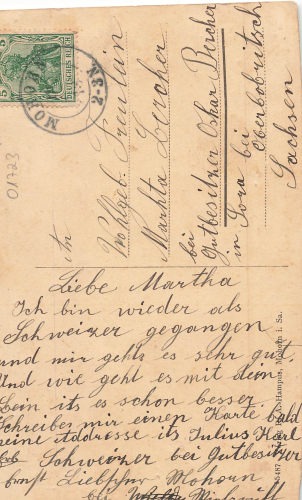 5
DEUTSCHES REICH
MOHORN
01723
An
Wohlgeb. Freulein
Marhta Zercher
bei
Gutbesitzer Oskar Bercher
in Sora bei
Oberbobritsch
Sachsen
Liebe Martha
Ich bin wieder als
Schweizer gegangen
und mir gehts es sehr gut.
Und wie geht es mit dein
Bein its es schon besser.
Schreiber mir einen Karte bald
meine Addresse its Julius Karl
Schweizer bei Gutbesitzer
Ernst Liebscher Mohorn
bei